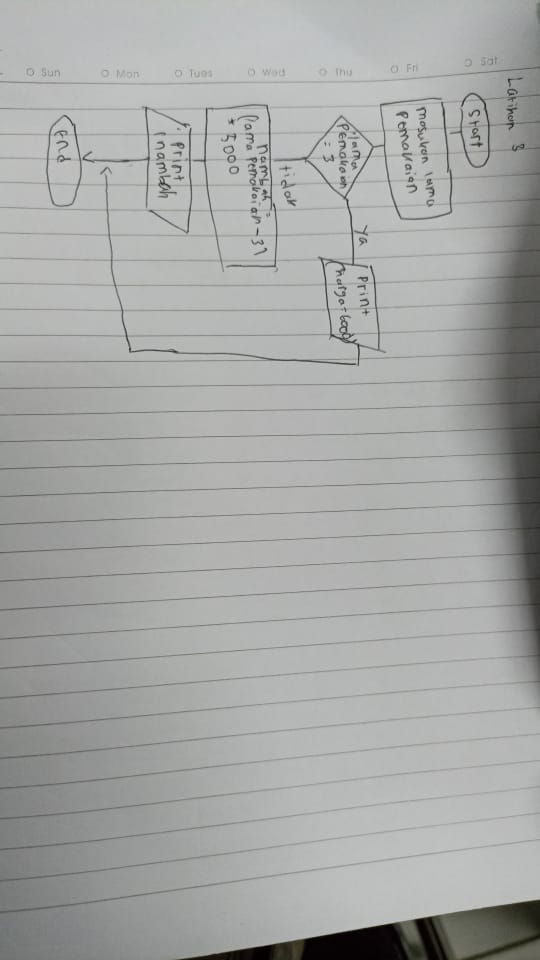 Sat
Fri
Thu
Wed
Tues
Mon
Sun
Latihan 3
Start
masukan lama
pemakaian
lama
pemakaian
= 3
ya
print
harga=6000
tidak
nambah =
(lama pemakaian - 3)
* 5000
print
nambah
End